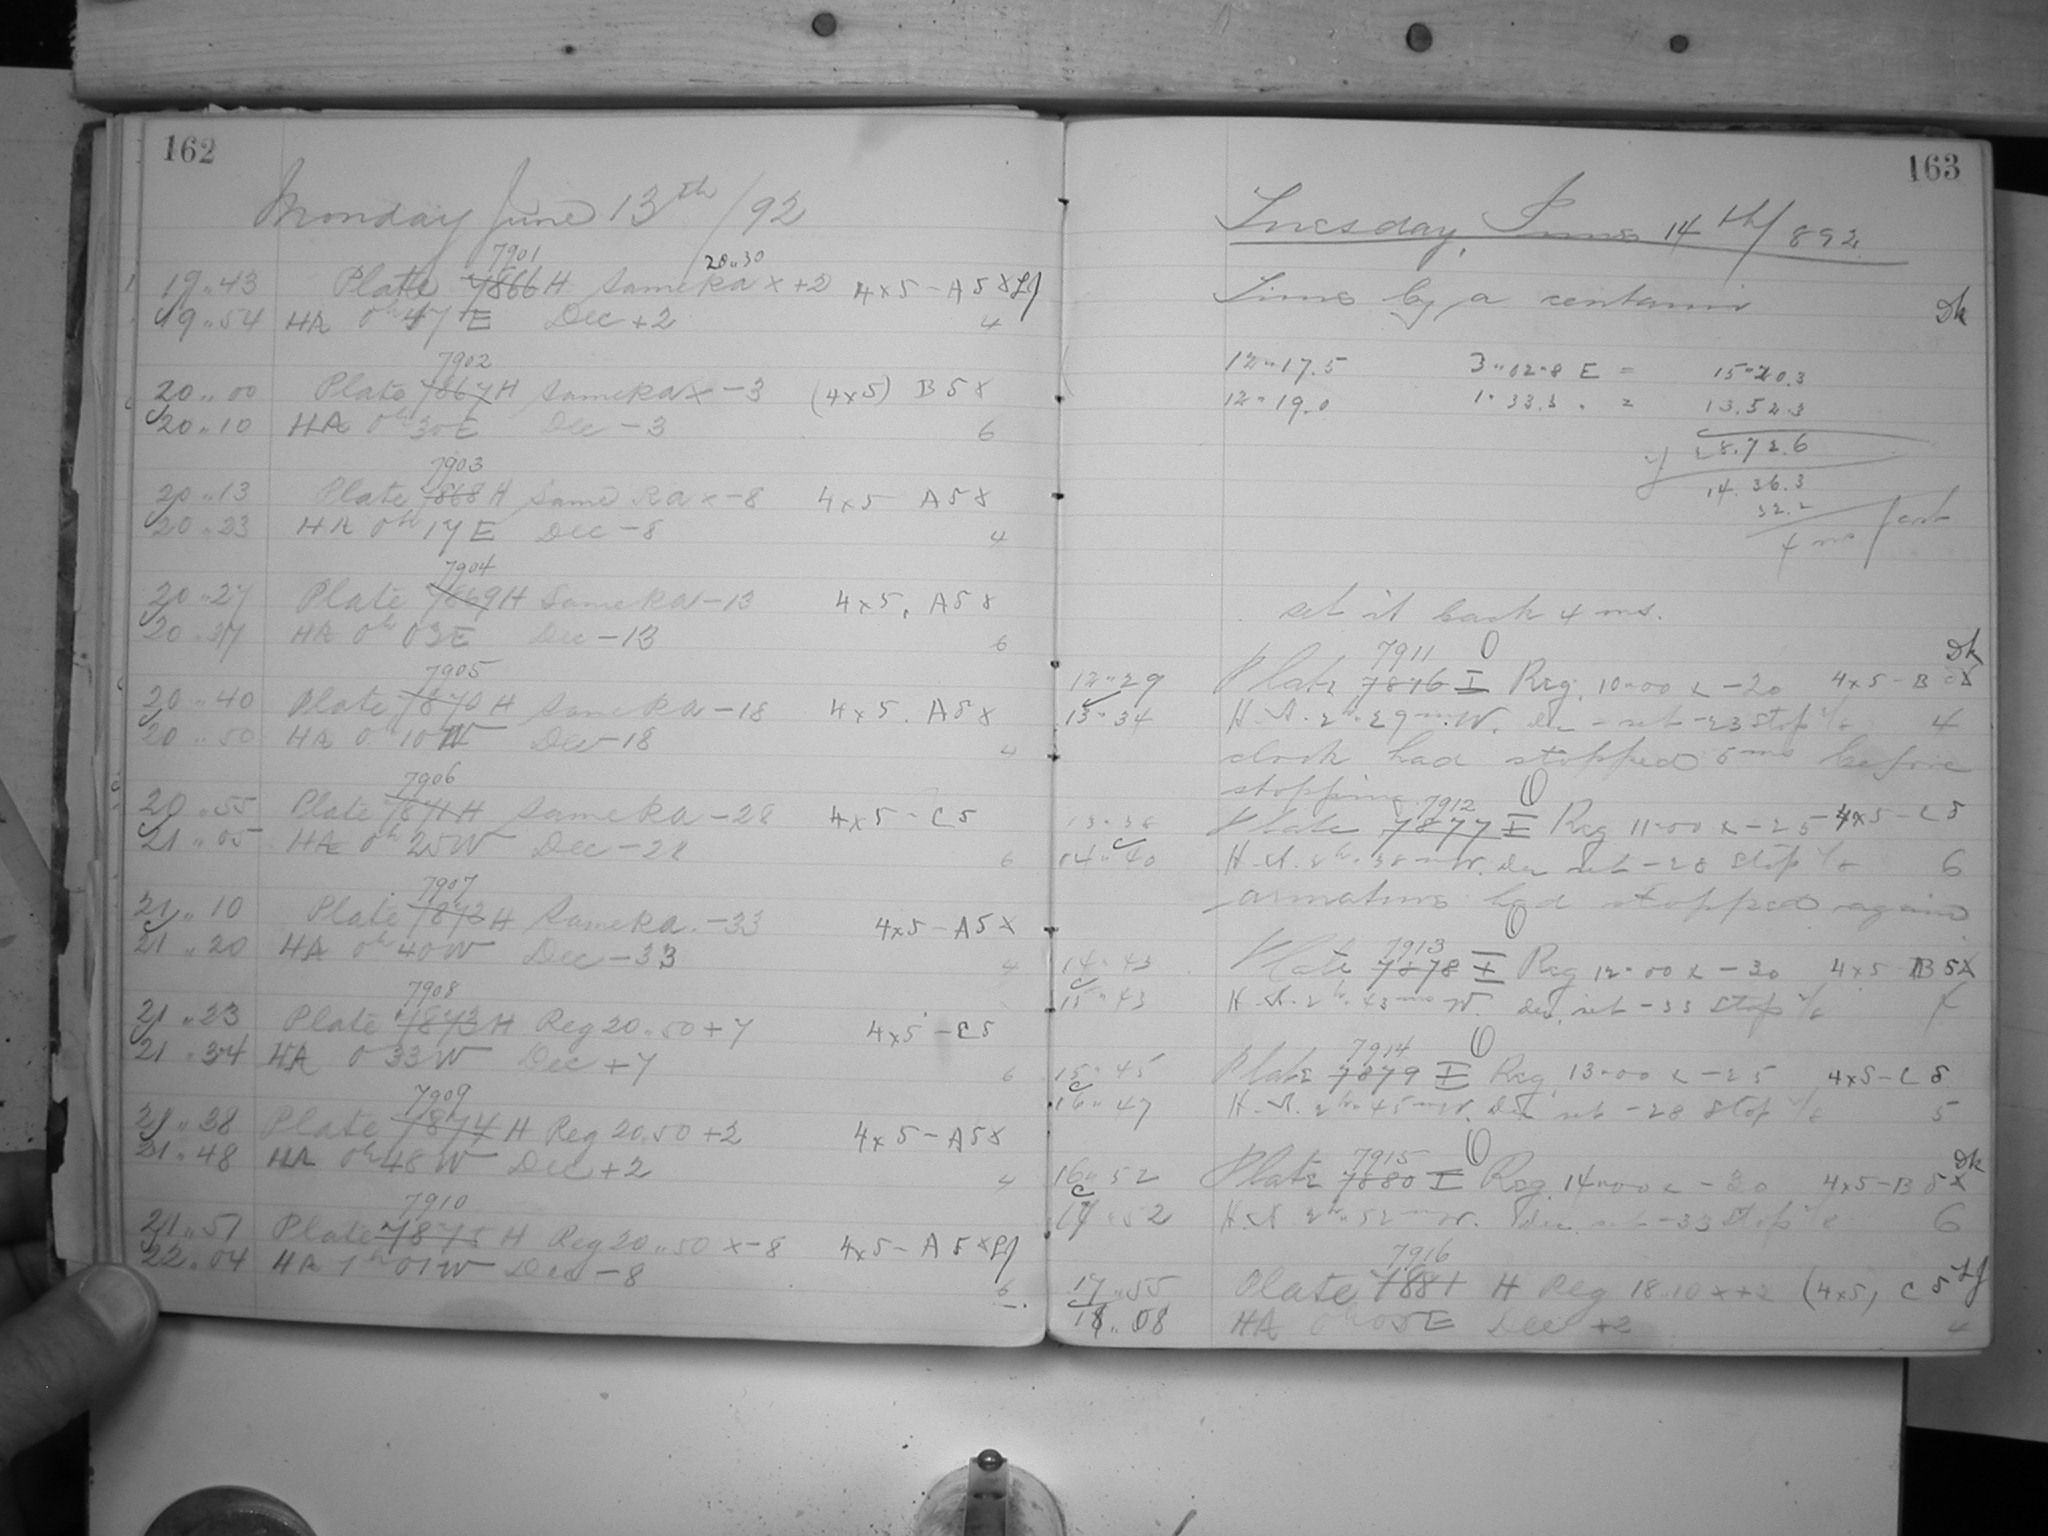 162
Monday June 13th/92
7901 20..30
19..43 Plate 7866 H Same Ra x +2 4x5-A5X LJ
19..54 HA 0h 47 E Dec +2 4
7902
20..00 Plate 7867 H Same Ra x -3 (4x5) B5X
20..10 HA 0h 30 E Dec -3 6
7903
20..13 Plate 7868 H Same Ra x -8 4x5 A5X
20..23 HA 0h 17 E Dec -8 4
7904
20..27 Plate 7869 H Same Ra -13 4x5. A5X
20..37 HA 0h 03 E Dec -13 6
7905
20..40 Plate 7870 H Same Ra -18 4x5. A5X
20..50 HA 0. 10 W Dec -18 4
7906
20..55 Plate 7871 H Same Ra -28 4x5-C5
21..05 HA 0h 25 W Dec -28 6
7907
21..10 Plate 7872 H Same Ra. -33 4x5-A5X
21..20 HA 0h 40 W Dec -33 4
7908
21..23 Plate 7873 H Reg 20..50 +7 4x5-C5
21..34 HA 0 33 W Dec +7 6
7909
21..38 Plate 7874 H Reg 20.50 +2 4x5-A5X
21..48 HA 0h 48 W Dec +2 4
7910
21..51 Plate 7875 H Reg 20..50 x -8 4x5-A5X LJ
22..04 HA 1h 01 W Dec -8 6
163
Tuesday, June 14th/892
Time by a centauri Dk
12..17.5 3..02.8 E = 15..20.3
12..19.0 1.33.3 . = 13.52.3
28.72.6
14.36.3
32.2
4 ms fast
set it back 4 ms.
7911 O Dk
12..29 Plate 7876 I Reg. 10..00 x -20 4x5-B5X
13..34 H.A. 2h..29m W. Dec set -23 stop 1/8 4
clock had stopped 5 ms before
stopping. 7912 O
13..38 Plate 7877 I Reg 11..00 x -25 4x5-C5
14..40 H.A. 2h..38m W. Dec set -28 stop 1/8 6
armature had stopped again
7913 O
14..43 Plate 7878 I Reg 12..00 x -30 4x5 B5X
15..43 H.A. 2h. 43ms W. dec. set -33 stop 1/8 4
7914 O
15..45 Plate 7879 I Reg 13..00 x -25 4x5-C5
16..47 H.A. 2h.. 45m W. Dec set -28 stop 1/8 5
7915 O Dk
16..52 Plate 7880 I Reg. 14..00 x -30 4x5-B5X
17..52 H.A. 2h..52m W. dec set -33 stop 1/8 6
7916
17..55 Plate 7881 H Reg 18.10 x +2 (4x5) C5 LJ
18..08 HA 0h 05 E Dec +2 4